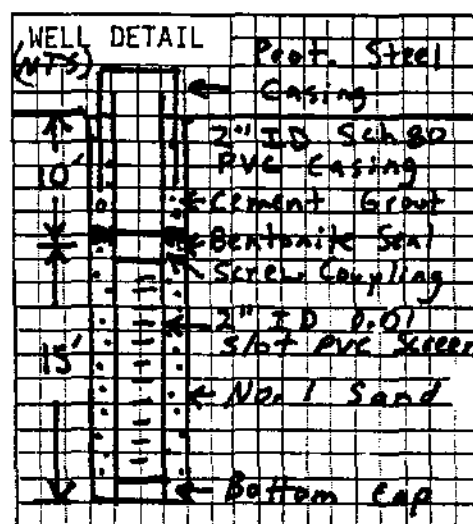 WELL DETAIL
(NTS)
Prot. Steel
Casing
2" ID Sch 80
PVC Casing
10'
Cement Grout
Bentonite Seal
Screw Coupling
2" ID 0.01
slot PVC Screen
15'
No. 1 Sand
Bottom Cap